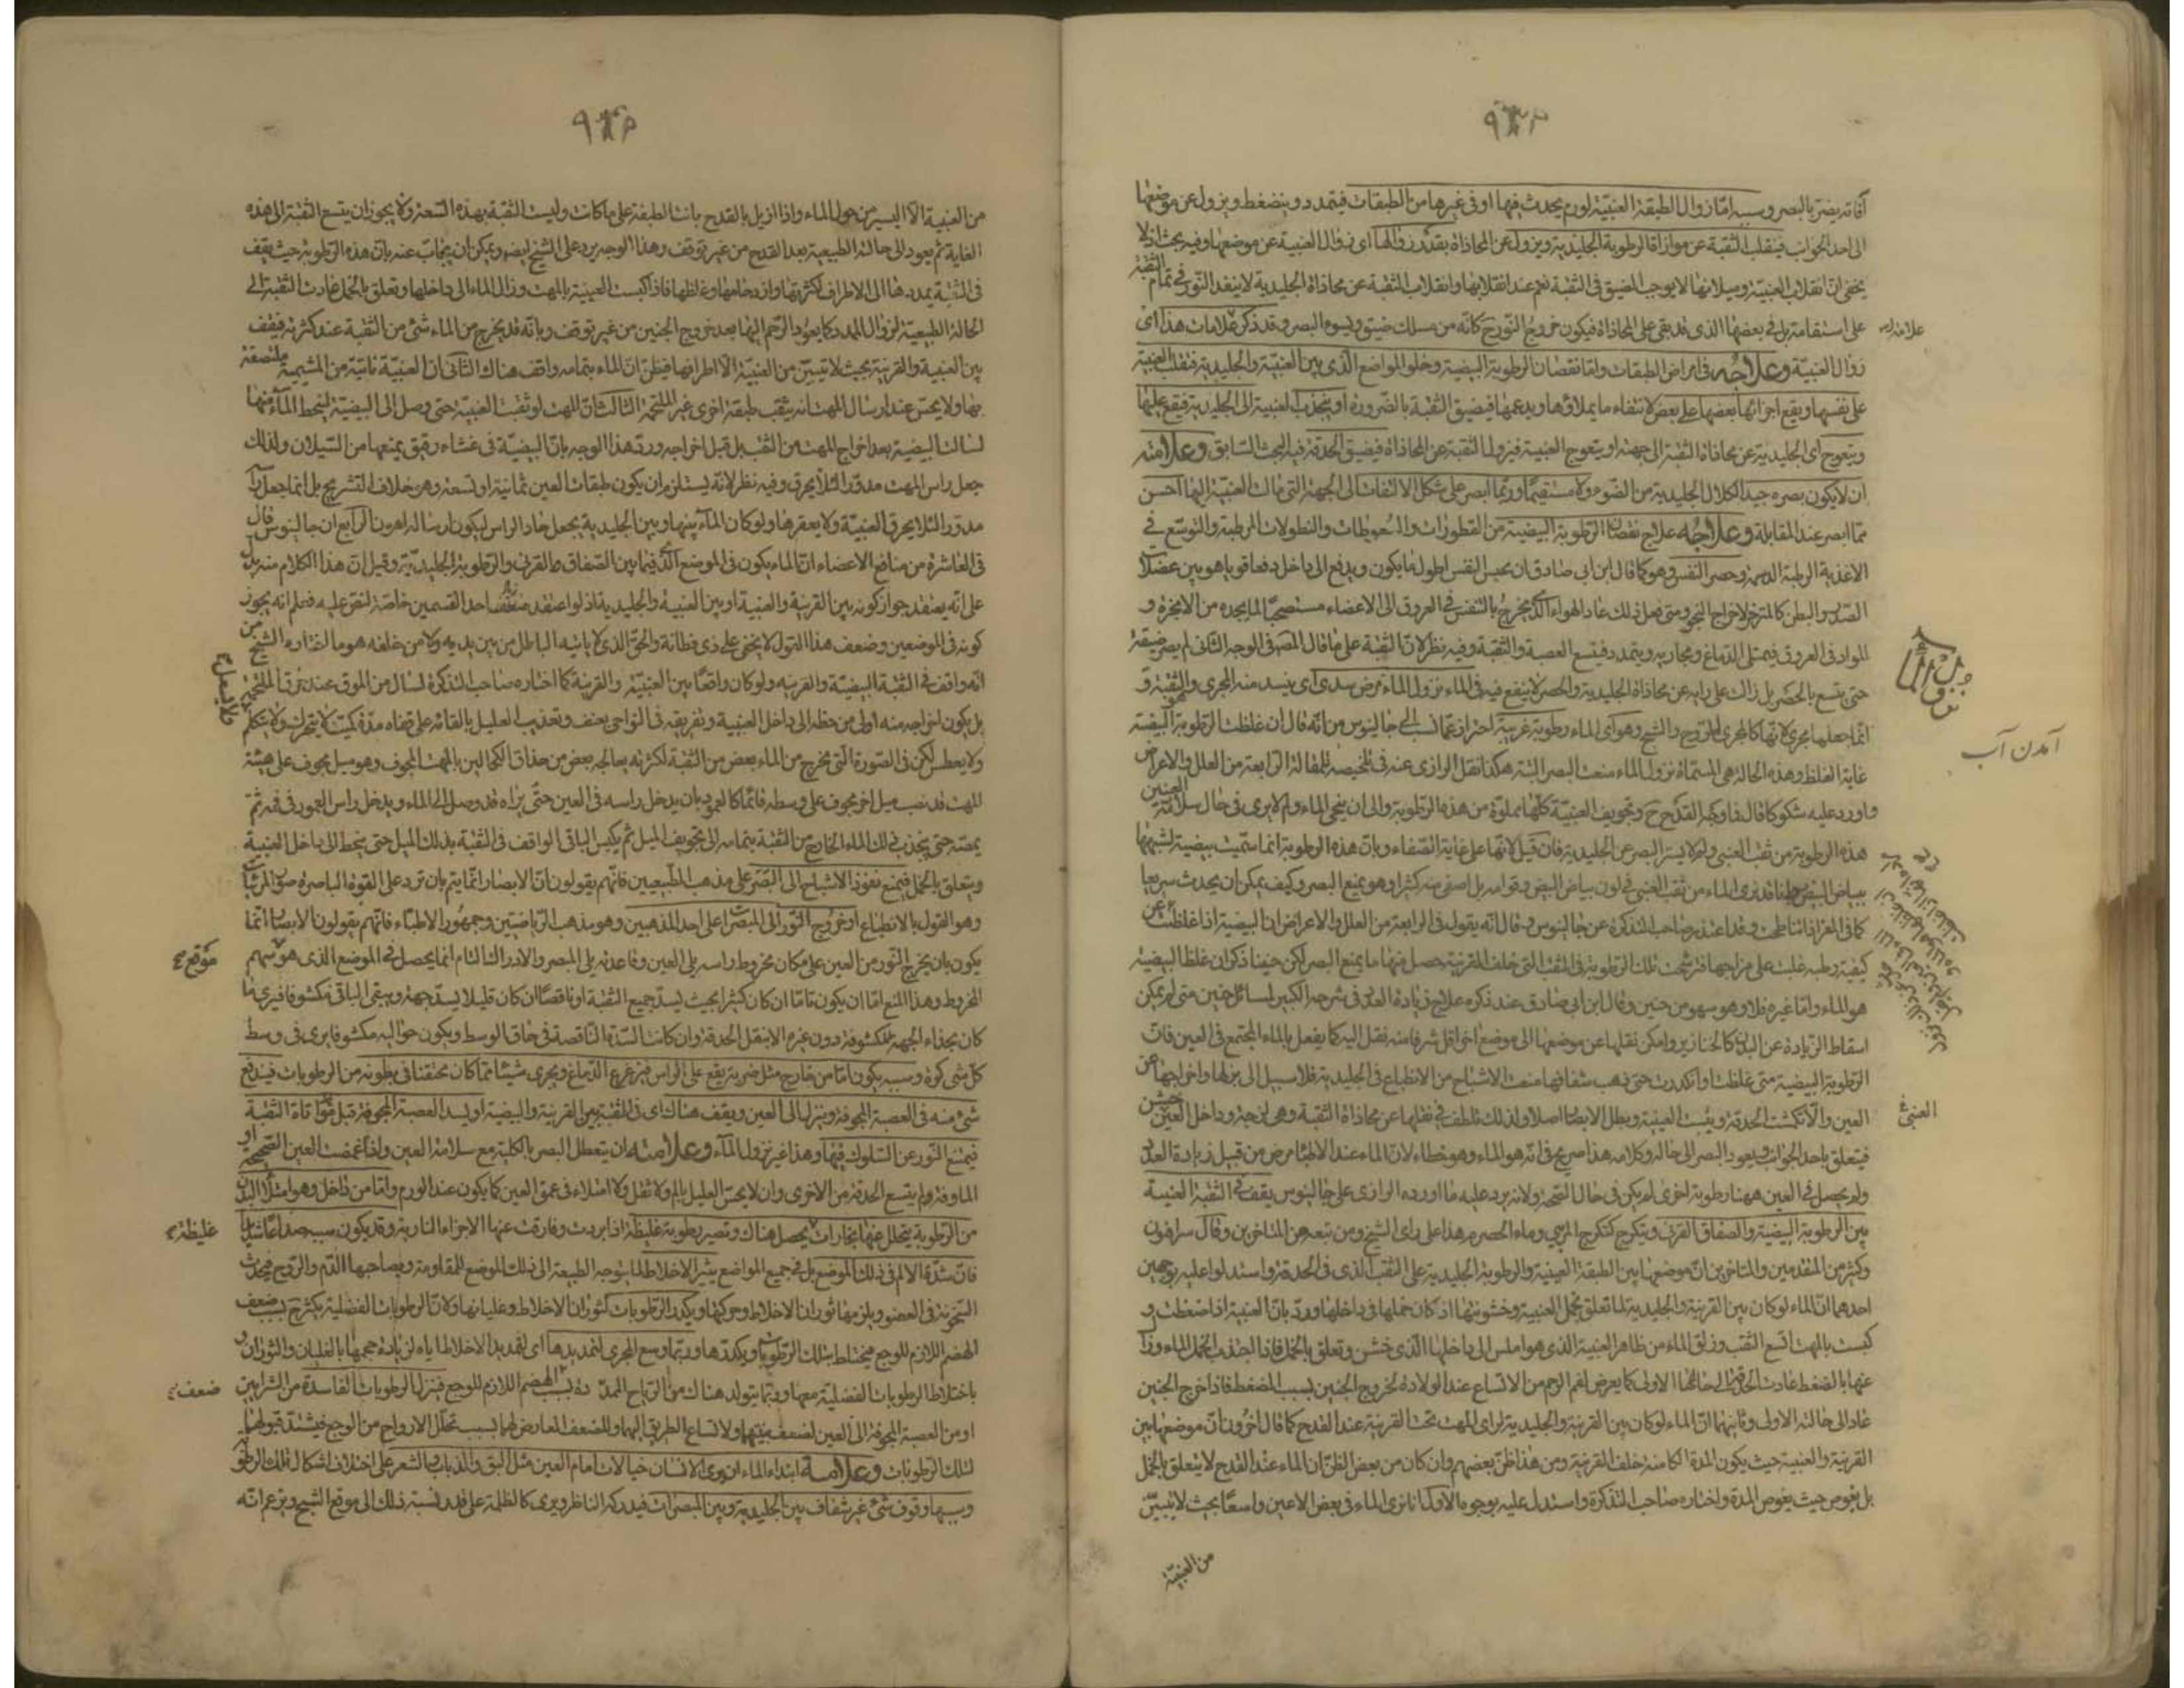 آفاته يضر بالبصر وسببه اما زوال الطبقة العنبية لورم يحدث فيها او فى غيرها من الطبقات فيتمدد وينضغط ويزول عن موضعها
الى احد الجوانب فينقلب الثقبة عن موازاة الرطوبة الجليدية ويزول عن المحاذاة بقدر زوالها اى زوال العنبية عن موضعها وفيه بحث اذ لا
يخفى ان انقلاب العنبية وميلانها لا يوجب الضيق فى الثقبة نعم عند انقلابها وانقلاب الثقبة عن محاذاة الجليدية لا ينفذ النور فى تمام الثقبة
على استقامة بل فى بعضها الذى قد بقى على المحاذاة فيكون خروج النور ح كانه من مسلك ضيق ويسوء البصر وقد ذكر علامات هذا اى
زوال العنبية وعلاجه فى امراض الطبقات واما نقصان الرطوبة البيضية وخلو المواضع الذى بين العنبية والجليدية فينقلب العنبية
على نفسها ويقع اجزائها بعضها على بعض لانتفاء ما يملاؤها ويدعمها فيضيق الثقبة بالضرورة او ينجذب العنبية الى الجليدية فيقع عليها
ويتعوج اى الجليدية عن محاذاة الثقبة الى جهة او يتعوج العنبية فيزول الثقبة عن المحاذاة فيضيق الحدقة فيه البحث السابق وعلامته
ان لا يكون بصره جيد الكلال الجليدية من الضوء ولا مستقيما وربما ابصر على شكل الالتفات الى الجهة التى مالت العنبية اليها احسن
مما ابصر عند المقابلة وعلاجه علاج نقصان الرطوبة البيضية من القطورات والسعوطات والنطولات المرطبة والتوسع فى
الاغذية الرطبة الدسمة وحصر النفس وهو كما قال ابن ابى صادق ان يحبس النفس اطول ما يكون ويدفع الى داخل دفعا قويا هو بين عضلات
الصدر والبطن كالمتزحر لاخراج النجو ومتى فعل ذلك عاد الهواء الذى يخرج بالتنفس فى العروق الى الاعضاء مستصحبا لما يجده من الابخرة و
المواد فى العروق فيمتلى الدماغ ومجاريه ويتمدد فيتسع العصبة والثقبة وفيه نظر لان الثقبة على ما قال المصـ فى الوجه الثانى لم يصر ضيقة
حتى يتسع بالحصر بل زالت على رايه عن محاذاة الجليدية والحصر لا ينفع فيه فى الماء نزول الماء مرض سدى اى ينسد منه المجرى والثقبة و
انما جعلها مجرى لانها كالمجرى للروح والشبح وهو اى الماء رطوبة غريبة احتراز عما نسب الى جالينوس من انه قال ان غلظت الرطوبة البيضية
غاية الغلظ وهذه الحالة هى المسماة نزول الماء منعت البصر البتة هكذا نقل الرازى عنه فى تلخيصه للمقالة الرابعة من العلل والاعراض
واورد عليه شكوكا قال فاوكيه القدح ح وتجويف العنبية كلها مملوة من هذه الرطوبة والى ان ينحى الماء ولم لا يرى فى حال سلامة العين
هذه الرطوبة من ثقب العنبى ولم لا يستر البصر عن الجليدية فان قيل لانها على غاية الصفاء وبان هذه الرطوبة انما سميت بيضية لشبهها
ببياض البيض وانا قد نرى الماء من ثقب العنبى فى لون بياض البيض وقوامه بل اصفى منه كثيرا وهو يمنع البصر وكيف يمكن ان يحدث سريعا
كما فى المعز اذا نناطحت وقد اعتذر صاحب التذكرة عن جالينوس وقال انه يقول فى الرابعة من العلل والاعراض ان البيضية اذا غلظت عن
كيفية رطبة غلبت على مزاجها فرشحت تلك الرطوبة فى الثقب التى خلف القرنية حصل منها ما يمنع البصر لكن حنينا ذكر ان غلظ البيضية
هو الماء واما غيره فلا وهو سهو من حنين وقال ابن ابى صادق عند ذكره علاج زيادة العدد فى شرحه الكبير لمسائل حنين متى لم يمكن
اسقاط الزيادة عن البدن كالخنازير وامكن نقلها عن موضعها الى موضع اخر اقل شرفا منه فنقل اليه كما يفعل بالماء المجتمع فى العين فان
الرطوبة البيضية متى غلظت وانكدرت حتى ذهب شفافها منعت الاشباح من الانطباع فى الجليدية فلا سبيل الى بزلها واخراجها من
العين والا انكمشت الحدقة ويبست العينية وبطل الابصار اصلا ولذلك تلطف فى نقلها عن محاذاة الثقبة وهى لزجة وداخل العين خشن
فيتعلق باحد الجوانب فيعود البصر الى حاله وكلامه هذا صريح فى انه هو الماء وهو خطاء لان الماء عند الاطباء مرض من قبيل زيادة العدد
ولم يحصل فى العين ههنا رطوبة اخرى لم يكن فى حال الصحة ولانه يرد عليه ما اورده الرازى على جالينوس يقف فى الثقبة العنبية
بين الرطوبة البيضية والصفاق القرنى ويتكرج كتكرج المرى وماء الحصرم هذا على راى الشيخ ومن تبعه من المتاخرين وقال سرافيون
وكثير من المتقدمين والمتاخرين ان موضعها بين الطبقة العنبية والرطوبة الجليدية على الثقب الذى فى الحدقة واستدلوا عليه بوجهين
احدهما ان الماء لو كان بين القرنية والجليدية لما تعلق بخمل العنبية وخشونتها اذ كان خملها فى داخلها ورد بان العنبية اذا ضغطت و
كبست بالمهت اتسع الثقب وزلق الماء من ظاهر العنبية الذى هو املس الى داخلها الذى خشن وتعلق بالخمل فاذا انجذب الخمل الماء وزال
عنها بالضغط عادت الحدقة الى حالتها الاولى كما يعرض لفم الرحم من الاتساع عند الولادة لخروج الجنين بسبب الضغط فاذا خرج الجنين
عاد الى حالته الاولى وثانيهما ان الماء لو كان بين القرنية والجليدية لراى المهت تحت القرنية عند القدح كما قال اخرون ان موضعها بين
القرنية والعنبية حيث يكون المدة الكامنة خلف القرنية ومن هذا ظن بعضهم وان كان من بعض الظن ان الماء عند القدح لا يتعلق بالخمل
بل يغوص حيث يغوص المدة واختاره صاحب التذكرة واستدل عليه بوجوه الاول انا نرى الماء فى بعض الاعين واسعا بحيث لا يتبين
من العنبية
علامته
نزول الماء
آمدن آب
العنبى
من العنبية الا اليسير من حول الماء واذا ازيل بالقدح بانت الطبقة على ما كانت وليست الثقبة بهذه السعة ولا يجوز ان يتسع الثقبة الى هذه
الغاية ثم يعود الى حالته الطبيعية بعد القدح من غير توقف وهذا الوجه يرد على الشيخ ايضا ويمكن ان يجاب عنه بان هذه الرطوبة حيث يقف
فى الثقبة يمددها الى الاطراف لكثرتها وازدحامها وغلظها فاذا كبست العينية بالمهت وزال الماء الى داخلها وتعلق بالخمل عادت الثقبة الى
الحالة الطبيعية لزوال الممدد كما يعود الرحم اليها بعد خروج الجنين من غير توقف وبانه قد يخرج من الماء شئ من الثقبة عند كثرته فيقف
بين العنبية والقرنية بحيث لا يتبين من العنبية الا اطرافها فيظن ان الماء بتمامه واقف هناك الثانى ان العنبية ناتية من المشيمية ملتصقة
بها ولا يحس عند ارسال المهت انه يثقب طبقة اخرى غير الملتحمة الثالث ان المهت لو ثقبت العنبية حتى وصل الى البيضية لينحط الماء منها
لسالت البيضية بعد اخراج المهت من الثقب بل قبل اخراجه ورد هذا الوجه بان البيضية فى غشاء رقيق يمنعها من السيلان ولذلك
جعل راس المهت مدورا لئلا يخرق وفيه نظر لانه يستلزم ان يكون طبقات العين ثمانية او تسعة وهو خلاف التشريح بل انما جعل راسه
مدورا لئلا يخرق العنبية ولا يعقرها ولو كان الماء بينها وبين الجليدية يجعل حاد الراس ليكون ارساله اهون الرابع ان جالينوس قال
فى العاشرة من منافع الاعضاء ان الماء يكون فى الموضع الذى فيما بين الصفاق القرنى والرطوبة الجليدية وقيل ان هذا الكلام منه يدل
على انه يعتقد جواز كونه بين القرنية والعنبية او بين العنبية والجليدية اذ لو اعتقد منه تخصيصا احد القسمين خاصة لنص عليه فعلم انه يجوز
كونه فى الموضعين وضعف هذا القول لا يخفى على ذى فطانة والحق الذى لا ياتيه الباطل من بين يديه ولا من خلفه هو ما اختاره الشيخ من
انه واقف فى الثقبة البيضية والقرنية ولو كان واقعا بين العنبية والقرنية كما اختاره صاحب التذكرة لسال من الموق عند خرق الملتحمة
بل يكون اخراجه منه اولى من حطه الى داخل العنبية وتفريقه فى النواحى بعنف وتعذيب العليل بالقائه على قفاه مدة كميت لا يتحرك ولا يتكلم
ولا يعطس لكن فى الصورة التى يخرج من الماء بعض من الثقبة لكثرته يعالجه بعض من حذاق الكحالين بالمهت المجوف وهو ميل مجوف على هيئة
المهت قد نصب ميل اخر مجوف على وسطه قائما كالعمود بان يدخل راسه فى العين حتى يراه قد وصل الى الماء ويدخل راس العمود فى فمه ثم
يمصه حتى ينجذب ذلك الماء الخارج من الثقبة بتمامه الى تجويف الميل ثم يكبس الباقى الواقف فى الثقبة بذلك الميل حتى ينحط الى داخل العنبية
ويتعلق بالخمل فيمنع نفوذ الاشباح الى البصر على مذهب الطبيعيين فانهم يقولون ان الابصار انما يتم بان ترد على القوة الباصرة صور المرئيات
وهو القول بالانطباع او خروج النور الى المبصرات على احد المذهبين وهو مذهب الرياضيين وجمهور الاطباء فانهم يقولون الابصار انما
يكون بان يخرج النور من العين على مكان مخروط راسه يلى العين وقاعدته يلى المبصر والادراك التام انما يحصل فى الموضع الذى هو سهم
المخروط وهذا المنع اما ان يكون تاما ان كان كثيرا بحيث ليسد جميع الثقبة او ناقصا ان كان قليلا يسد جهة ويبقى الباقى مكشوفا فيرى ما
كان بحذاء الجهة المكشوفة دون غيره الا بنقل الحدقة وان كانت السدة الناقصة فى حاق الوسط ويكون حواليه مكشوفا يرى فى وسط
كل شئ كوة وسببه يكون اما من خارج مثل ضربة يقع على الراس فيزعزع الدماغ ويجرى شيئا مما كان محتقنا فى بطونه من الرطوبات فيندفع
شئ منه فى العصبة المجوفة وينزل الى العين ويقف هناك اى فى الثقبة بين القرنية والبيضية او ليسد العصبة المجوفة قبل موافاة الثقبة
فيمنع النور عن السلوك فيها وهذا غير نزول الماء وعلامته ان يتعطل البصر بالكلية مع سلامة العين واذا غمضت العين الصحيحة او
الماوفة لم يتسع الحدقة من الاخرى وان لا يحس العليل بالم ولا ثقل ولا امتلاء فى عمق العين كما يكون عند الورم واما من داخل وهو امتلاء البدن
من الرطوبة يتحلل عنها بخارات يحصل هناك وتصير رطوبة غليظة اذا بردت وفارقت عنها الاجزاء النارية وقد يكون سببه صداعا شديدا
فان شدة الالم فى ذلك الموضع بل فى جميع المواضع يثير الاخلاط لما يتوجه الطبيعة الى ذلك الموضع للمقاومة ويصاحبها الدم والروح فيحدث
السخونة فى العضو ويلزمها ثوران الاخلاط وحركتها ويكدر الرطوبات لثوران الاخلاط وغليانها ولان الرطوبات الفضلية يكثر ح بسبب ضعف
الهضم اللازم للوجع فيختلط بتلك الرطوبات ويكدرها وربما وسع المجرى لتمديدها اى لتمديد الاخلاط اياه لزيادة حجمها بالغليان والثوران و
باختلاط الرطوبات الفضلية معها وربما يتولد هناك من الرياح الممددة بسبب الهضم اللازم للوجع فينزل الرطوبات الفاسدة من الشرايين
او من العصبة المجوفة الى العين لضعف بنيتها ولاتساع الطريق اليها وللضعف العارض لها بسبب تحلل الارواح من الوجع فيشتد قبولها
لتلك الرطوبات وعلامة ابتداء الماء ان يرى الانسان خيالات امام العين مثل البق والذباب والشعر على اختلاف اشكال تلك الرطوبة
وسببها وقوف شئ غير شفاف بين الجليدية وبين المبصرات فيدركه الناظر ويرى كالظلمة على قدر نسبة ذلك الى موقع الشبح ويزعم انه
موقع
غليظة
ضعف